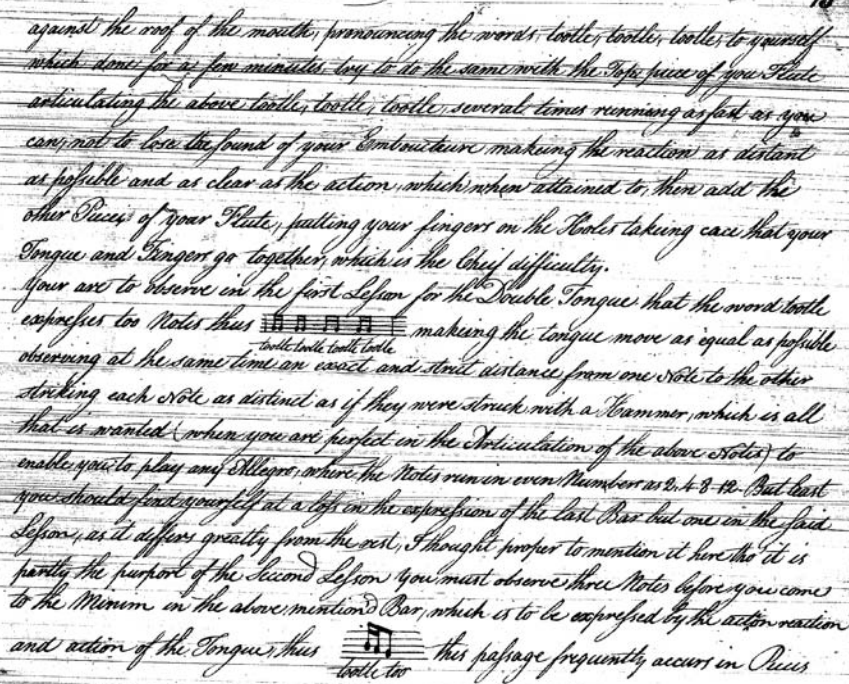 13
against the roof of the mouth, pronouncing the words, tootle, tootle, tootle, to yourself
which done for a few minutes try to do the same with the Tope piece of you Flute
articulating the above tootle, tootle, tootle, several times running as fast as you
can, not to lose the sound of your Embouchure makeing the reaction as distant
as possible and as clear as the action, which when attained to, then add the
other Pieces of your Flute, putting your fingers on the Holes takeing care that your
Tongue and Fingers go together, which is the Chief difficulty.
Your are to observe in the first Lesson for the Double Tongue that the word tootle
expresses too Notes thus makeing the tongue move as equal as possible
tootle tootle tootle tootle
observing at the same time an exact and strict distance from one Note to the other
striking each Note as distinct as if they were struck with a Hammer, which is all
that is wanted (when you are perfect in the Articulation of the above Notes) to
enable you to play any Allegro, where the Notes run in even Numbers as 2. 4 8 12 - But least
you should find yourself at a loss in the expression of the last Bar but one in the said
Lesson, as it differs greatly from the rest, I thought proper to mention it here tho' it is
partly the purport of the Second Lesson you must observe three Notes before you come
to the Minim in the above, mention'd Bar, which is to be expressed by the action reaction
and action of the Tongue, thus this passage frequently accurs in Pieces
tootle too